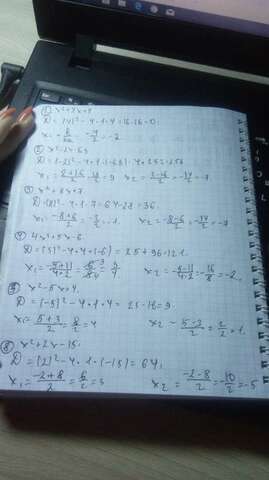 1) x²+4x+4
D = (4)² - 4·1·4 = 16-16 = 0.
x₁ = -b/2a = -4/2 = -2
2) x²-2x-63
D = (-2)² - 4·1·(-63) = 4+252 = 256
x₁ = 2+16/2 = 18/2 = 9 x₂ = 2-16/2 = -14/2 = -7
3) x²+8x+7.
D = (8)² - 4·1·7 = 64-28 = 36.
x₁ = -8+6/2 = -2/2 = -1. x₂ = -8-6/2 = -14/2 = -7
4) 4x²+5x-6.
D = (5)² - 4·4·(-6) = 25+96 = 121.
x₁ = -5+11/4·2 = 6/8 = 3/4 x₂ = -5-11/4·2 = -16/8 = -2
x²-5x+4.
D = (-5)² - 4·1·4 = 25-16 = 9
x₁ = 5+3/2 = 8/2 = 4 x₂ = 5-3/2 = 2/2 = 1.
x²+2x-15:
D = (2)² - 4·1·(-15) = 64;
x₁ = -2+8/2 = 6/2 = 3 x₂ = -2-8/2 = -10/2 = -5